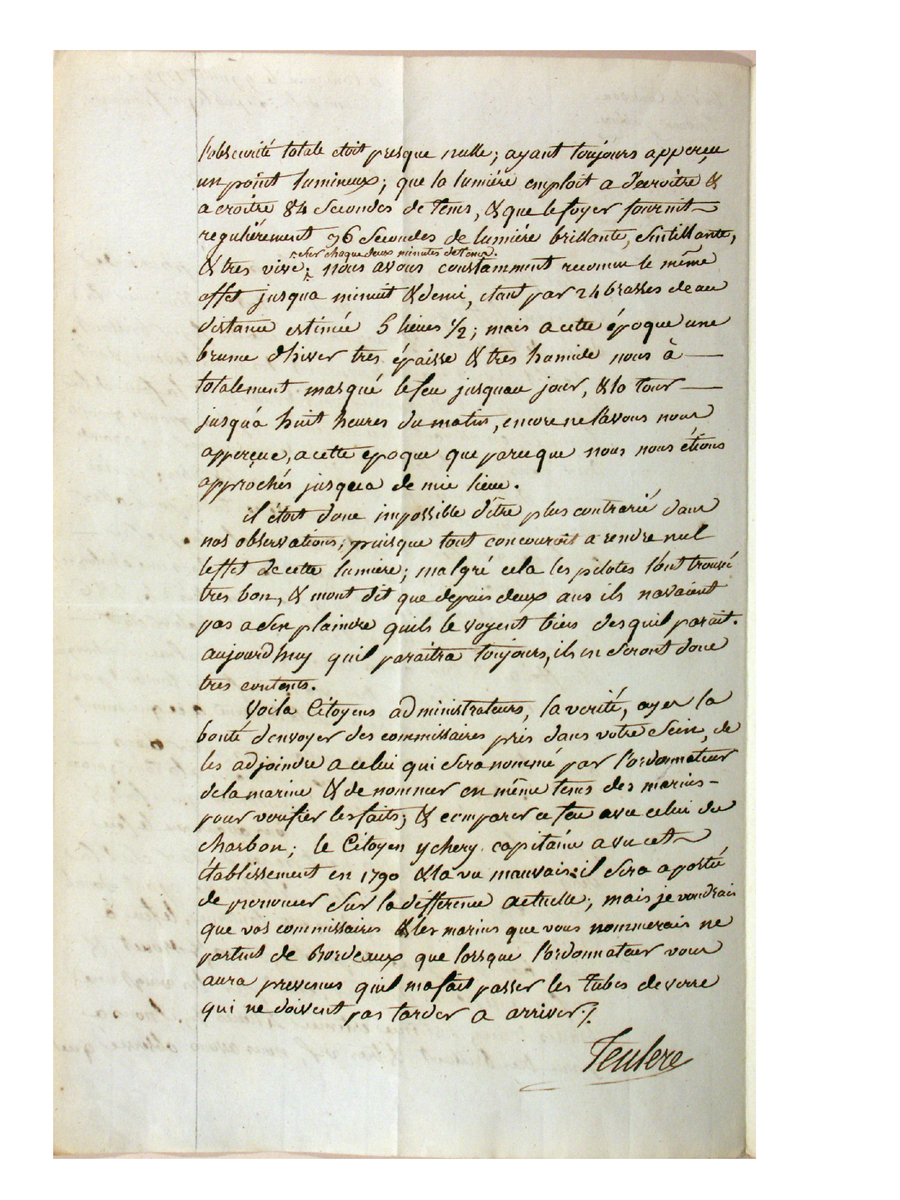 l'obscurité totale etoit presque nulle; ayant toujours apperçu
un point lumineux; que la lumiére emploit a decroitre &
a croitre 84 Secondes de tems, & que le foyer fournit
regulièrement 36 Secondes de lumiére brillante, Sintillante,
sur chaque deux minutes de tems.
& tres vive; nous avons constamment reconnu le même
effet jusqua minuit & demi, etant par 24 brasses deau
distance estimée 5 lieues 1/2; mais a cette époque une
brume d'hiver tres épaisse & tres humide nous à
totalement masqué le feu jusquau jour, & la tour
jusqu'a huit heures du matin, encore ne lavons nous
apperçue, a cette epoque que parceque nous nous étions
approchés jusqua de mie lieue.
il étoit donc impossible d'être plus contrarié dans
nos observations; puisque tout concouroit a rendre nul
leffet de cette lumiere; malgré cela les pilotes l'ont trouvé
tres bon, & mont dit que depuis deux ans ils navaient
pas a sen plaindre quils le voyent bien desquil parait.
aujourdhuy quil paraitra toujours, ils en Seront donc
tres contents.
Voila Citoyens administrateurs, la verité, ayez la
bonté denvoyer des commissaires pris dans votre Sein, de
les adjoindre a celui qui Sera nommé par l'ordonnateur
de la marine & de nommer en même tems des marins
pour verifier les faits; & comparer ce feu avec celui du
charbon; le Citoyen ychery capitaine a vu cet
établissement en 1790 & la vu mauvais: il Sera a porté
de prononcer Sur la difference actuelle; mais je voudrais
que vos commissaires & les marins que vous nommerais ne
partent de Bordeaux que lorsque l'ordonnateur vous
aura prevenus quil ma fait passer les tubes de verre
qui ne doivent pas tarder a arriver ./.
Teulere